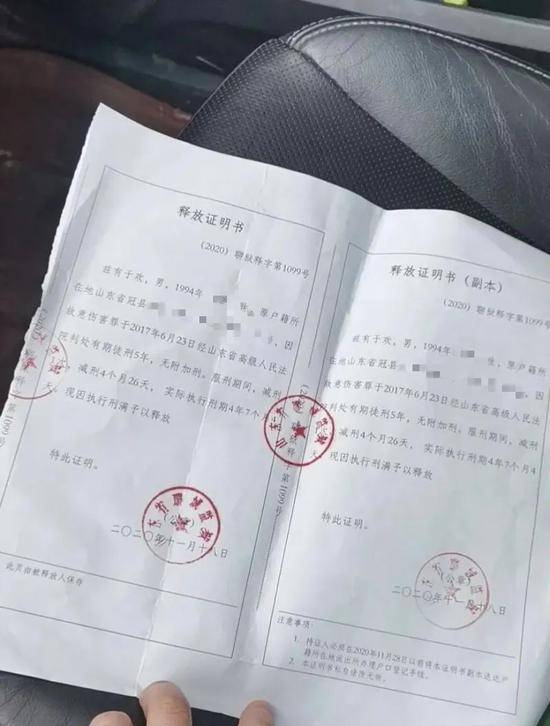 释放证明书
(2020) 聊狱释字第1099号
兹有于欢,男,1994年 生,原户籍所
在地山东省冠县 ,因
故意伤害罪于2017年6月23日经山东省高级人民法
院判处有期徒刑5年,无附加刑。服刑期间,减刑
减刑4个月26天,实际执行刑期4年7
天,现因执行刑满予以释放
特此证明。
(公章)
山东省聊城监狱
二〇二〇年十一月十八日
此页由被释放人保存
释字第1099号
山东省聊城监狱
释放证明书(副本)
(2020) 聊狱释字第1099号
兹有于欢,男,1994年 生,原户籍所
在地山东省冠县 ,因
故意伤害罪于2017年6月23日经山东省高级人民法
院判处有期徒刑5年,无附加刑。服刑期间,减刑
减刑4个月26天,实际执行刑期4年7个月4
现因执行刑满予以释放
特此证明。
(公章)
二〇二〇年十一月十八日
注意事项:
1. 持证人必须在2020年11月28日以前将本证明书副本送达户
籍所在地派出所办理户口登记手续。
2. 本证明书私自涂改无效。